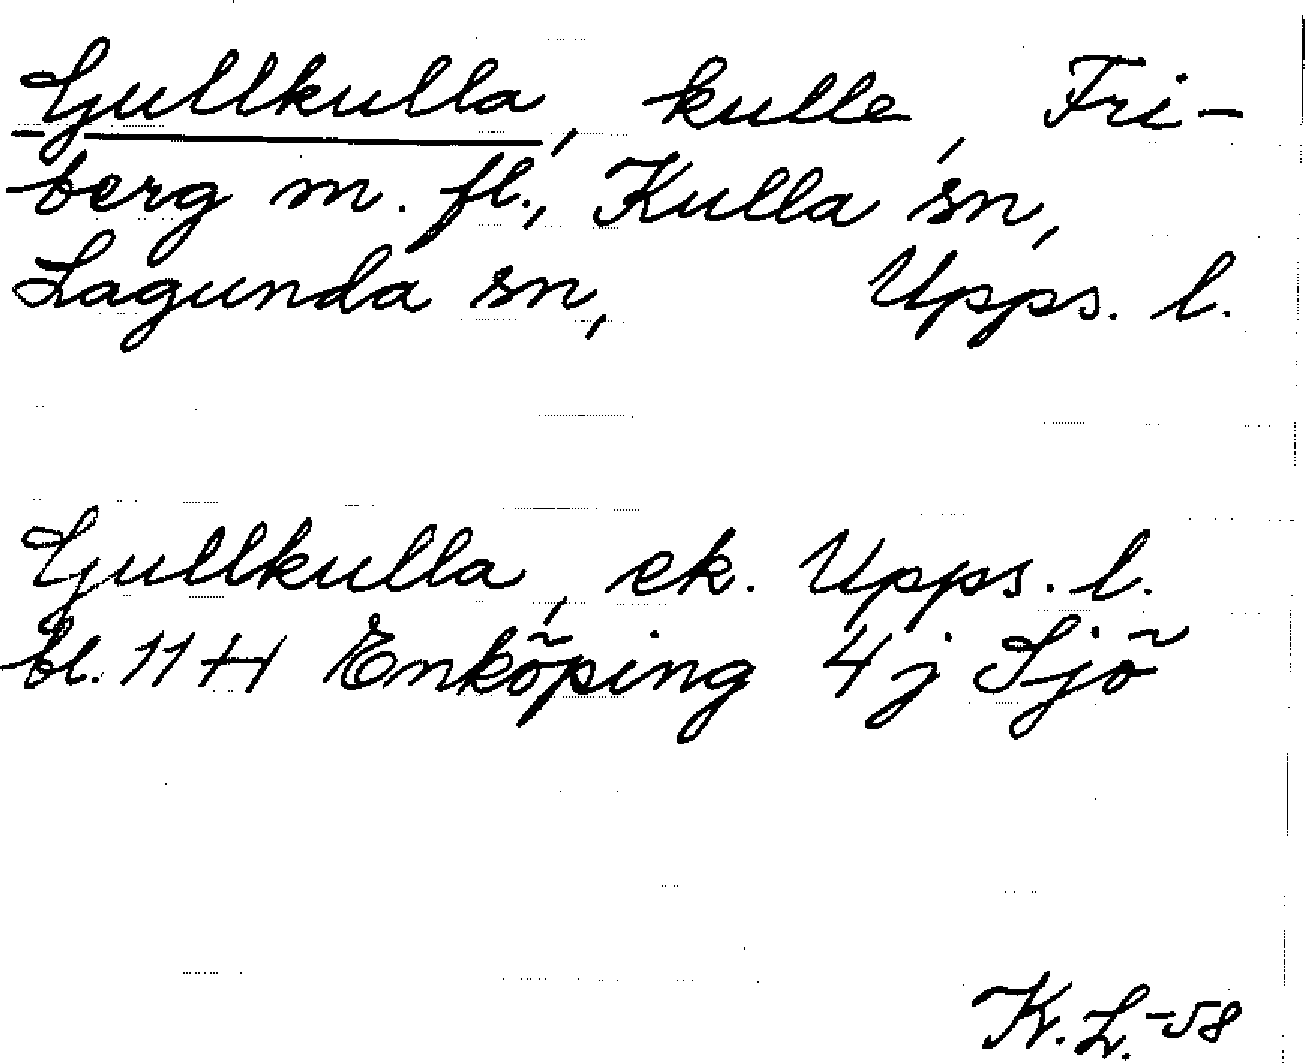 Gullkulla, kulle, Fri-
berg m. fl., Kulla sn,
Lagunda sn, Upps. l.
Gullkulla, ek. Upps. l.
bl. 11 H Enköping 4 j Sjö
K. L. -58